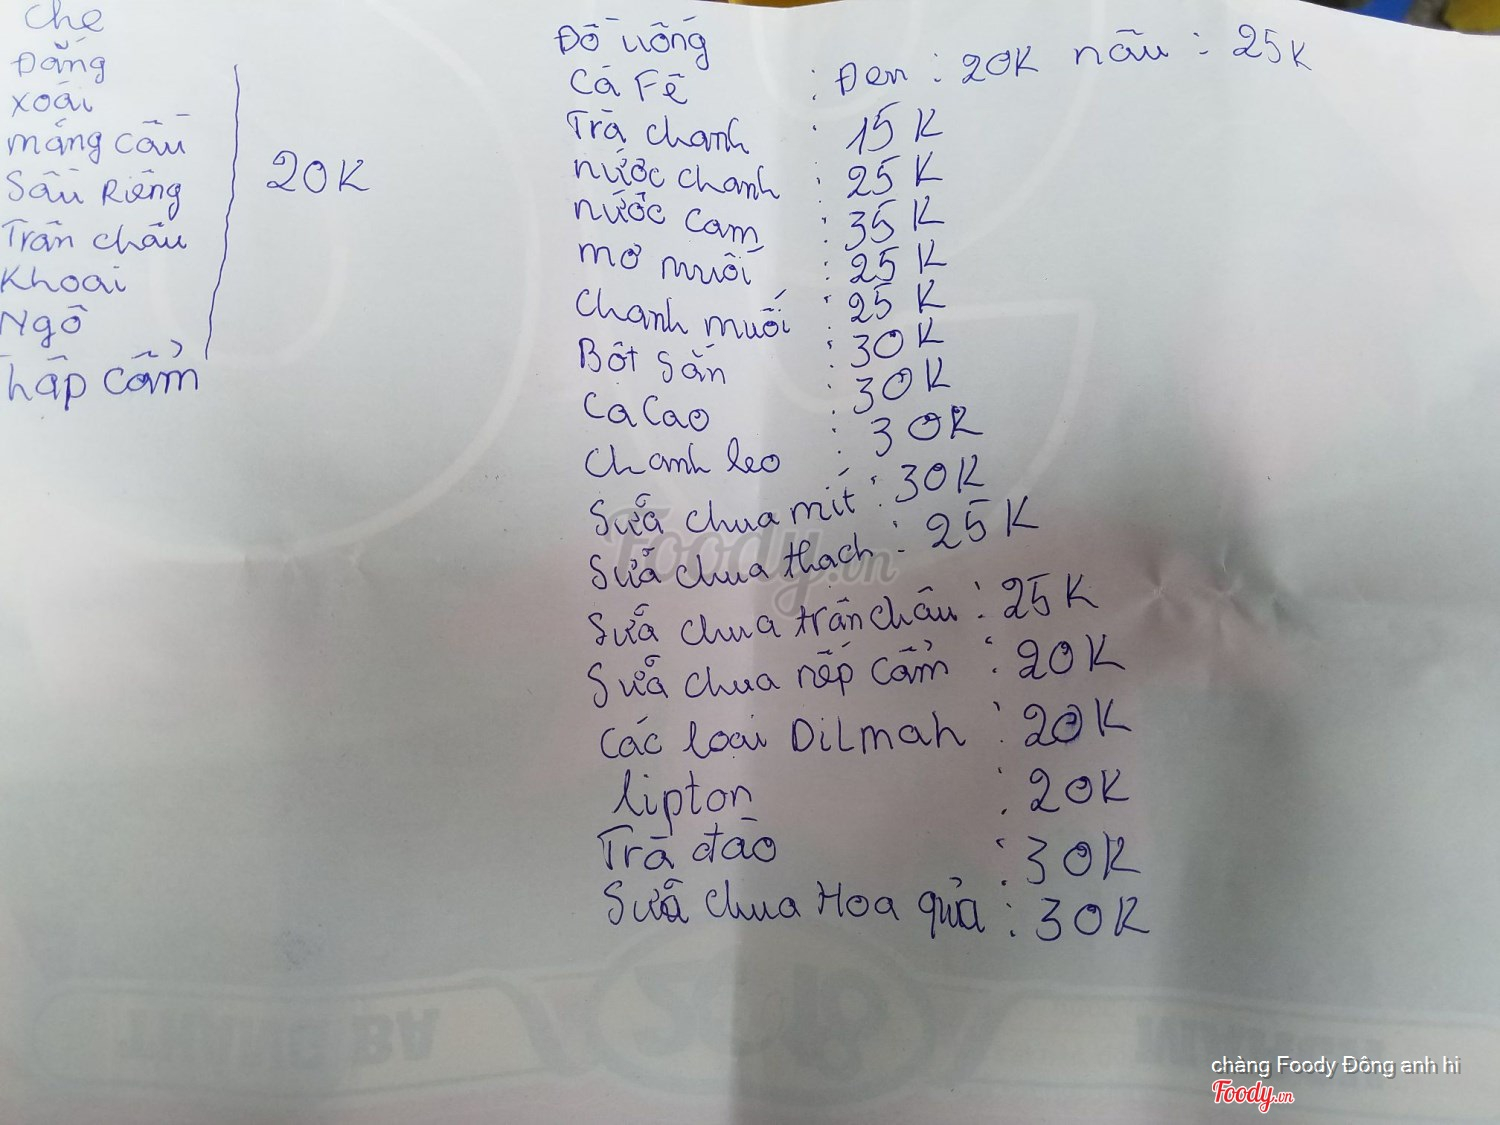 Chè
Đắng
Xoài
mãng cầu
Sầu Riêng
Trân châu
Khoai
Ngô
Thập cẩm
20K
Đồ uống
Cà Fê : Đen : 20K nâu : 25K
Trà chanh : 15K
nước chanh : 25K
nước cam : 35K
mơ muối : 25K
Chanh muối : 25K
Bột sắn : 30K
Ca Cao : 30K
Chanh leo : 30K
Sữa chua mít : 30K
Sữa chua thạch : 25K
Sữa chua trân châu : 25K
Sữa chua nếp cẩm : 20K
Các loại DiLmah : 20K
lipton : 20K
Trà đào : 30K
Sữa chua Hoa quả : 30K
Foody.vn
chàng Foody Đông anh hi
Foody.vn